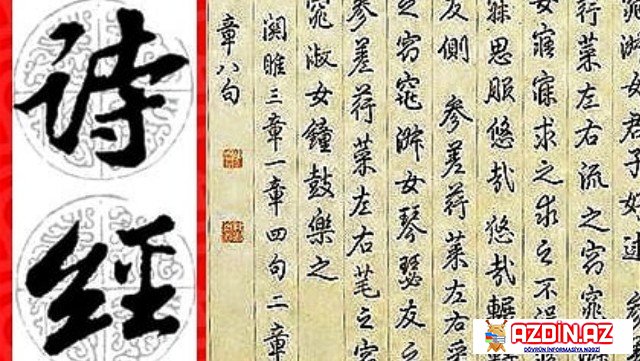 诗
经
淑女君子好逑
行菜左右流之窈窕
女寤寐求之求之不得
寐思服悠哉悠哉輾
友側 參差荇菜左右采
之窈窕淑女琴瑟友之
參差荇菜左右芼之窈
窕淑女鐘鼓樂之
関雎三章一章四句二章
章八句
AZDİN.AZ
DÖVRÜN İNFORMASİYA NƏBZİ